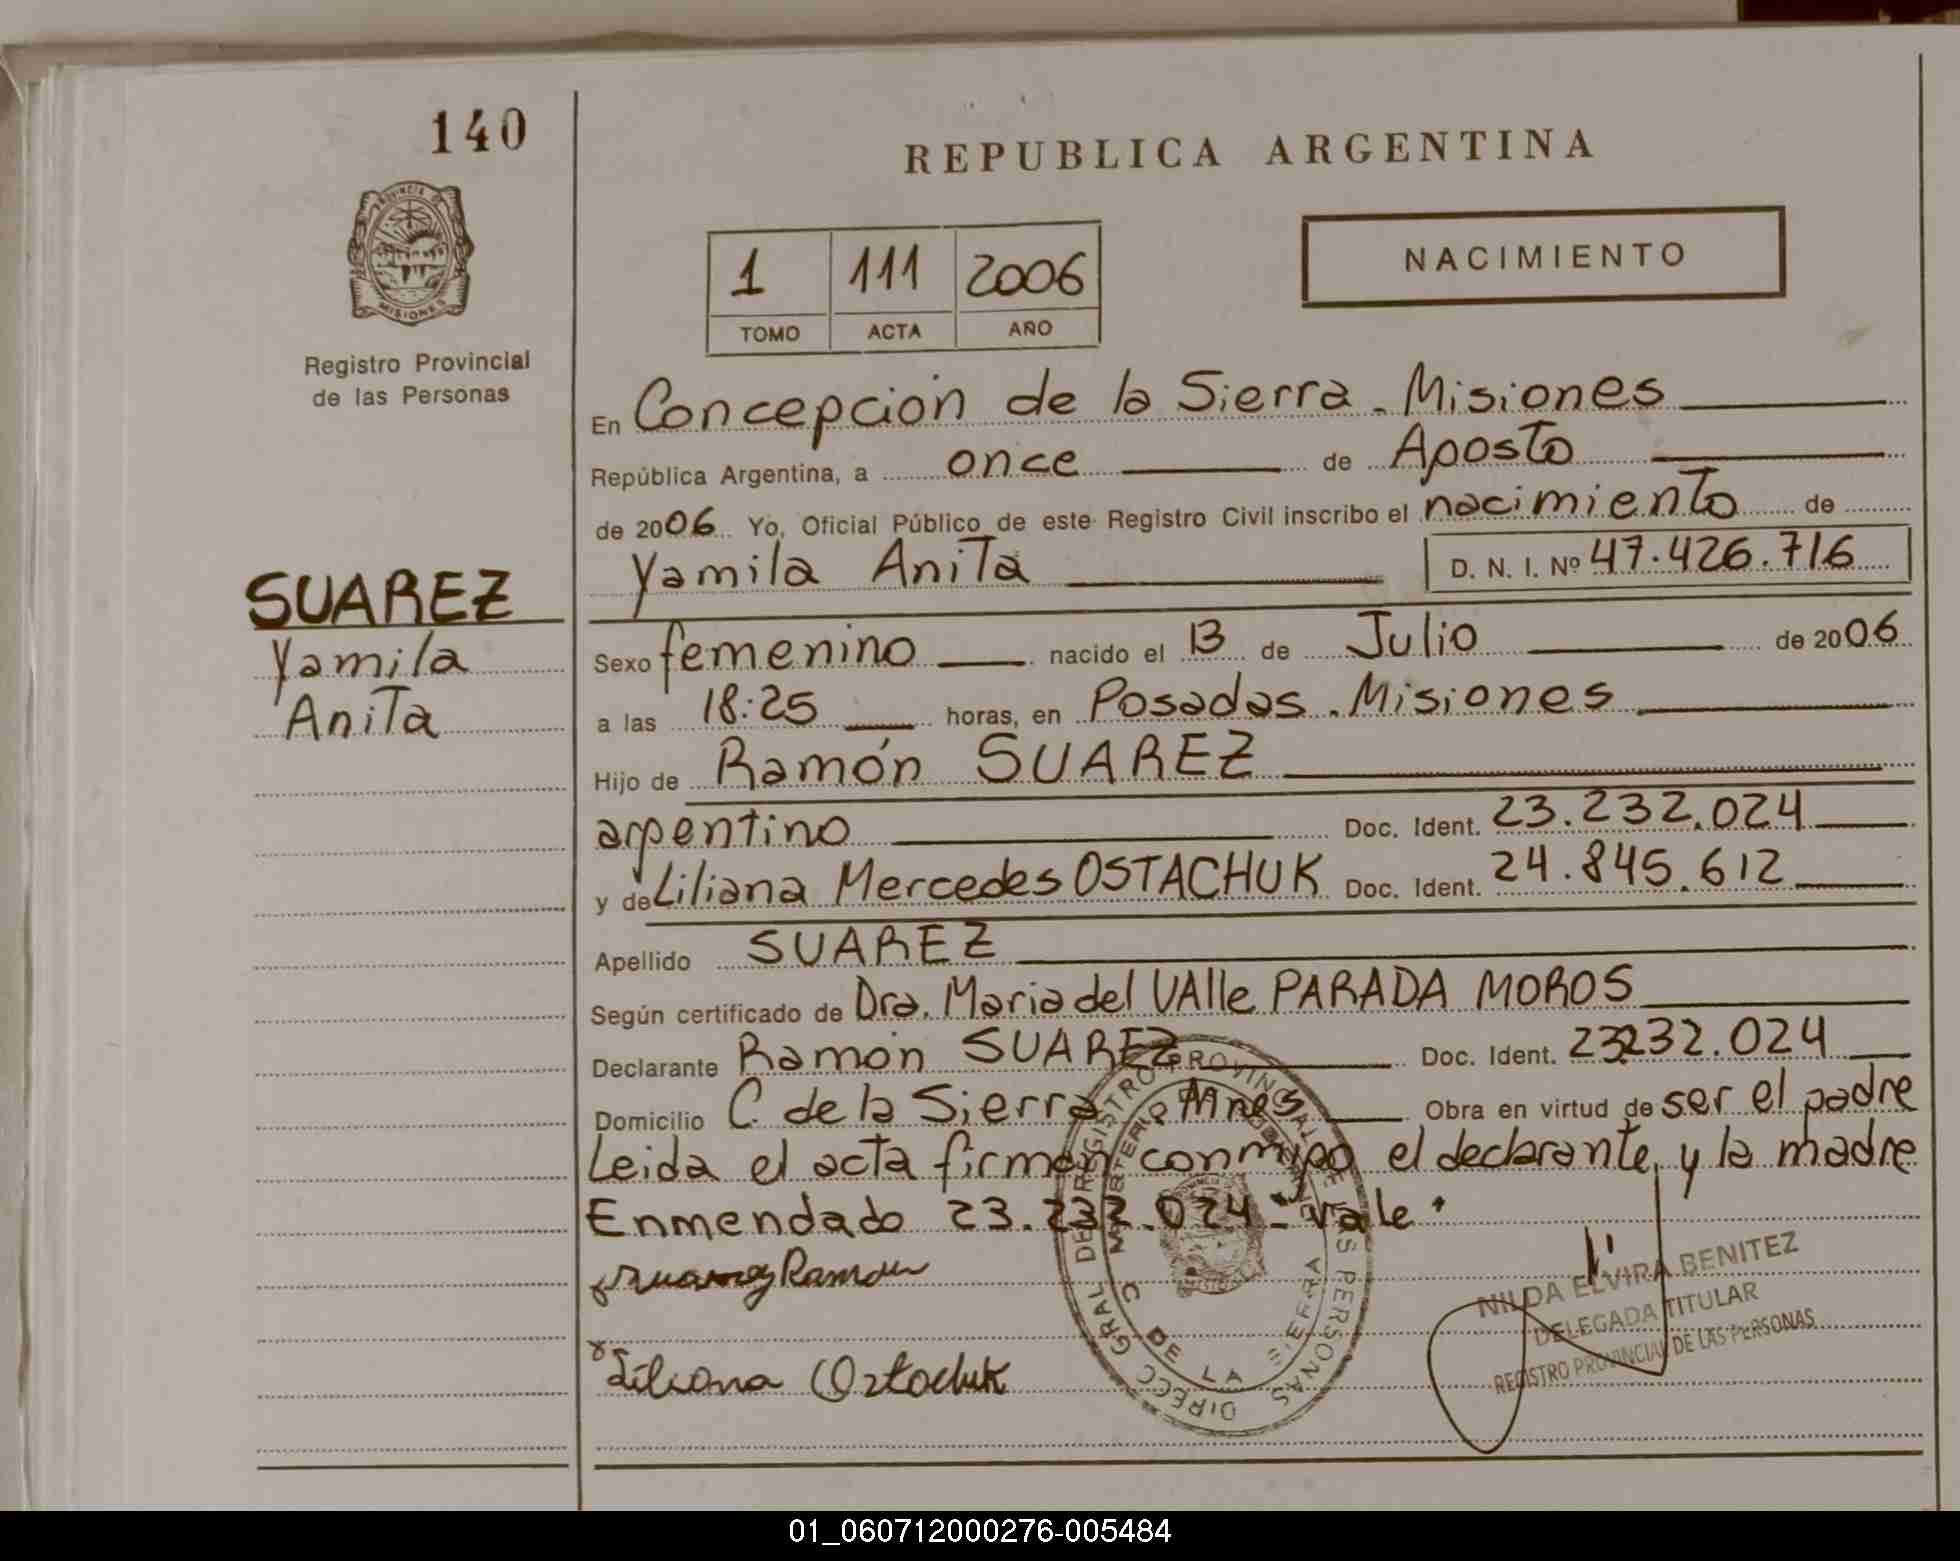 140
REPUBLICA ARGENTINA
PROVINCIA DE
MISIONES
Registro Provincial
de las Personas
1 111 2006
TOMO ACTA AÑO
NACIMIENTO
En Concepción de la Sierra - Misiones
República Argentina, a once de Agosto
de 2006 Yo, Oficial Público de este Registro Civil inscribo el nacimiento de
Yamila Anita D. N. I. Nº 47.426.716
SUAREZ
Yamila
Anita
Sexo femenino nacido el 13 de Julio de 2006
a las 18:25 horas, en Posadas . Misiones
Hijo de Ramón SUAREZ
argentino Doc. Ident. 23.232.024
y de Liliana Mercedes OSTACHUK Doc. Ident. 24.845.612
Apellido SUAREZ
Según certificado de Dra. Maria del VAlle PARADA MOROS
Declarante Ramón SUAREZ Doc. Ident. 23232.024
Domicilio C. de la Sierra, Mnes Obra en virtud de ser el padre
Leida el acta firman conmigo el declarante, y la madre
Enmendado 23.232.024 - Vale.
Suarez Ramon
Liliana Ostachuk
DIRECC GRAL DE REGISTRO PROVINCIAL DE LAS PERSONAS
C DE LA SIERRA
NILDA ELVIRA BENITEZ
DELEGADA TITULAR
REGISTRO PROVINCIAL DE LAS PERSONAS
01_060712000276-005484